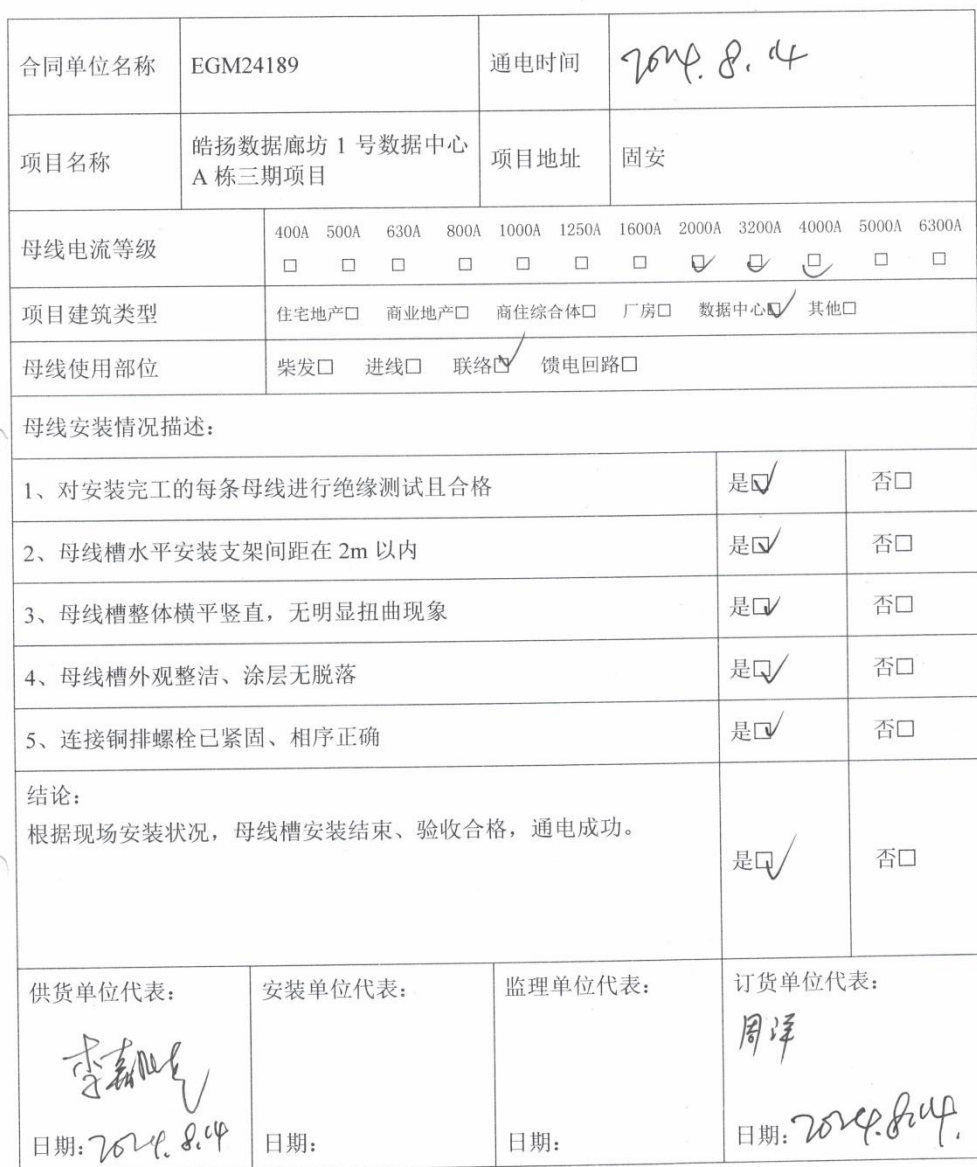 合同单位名称 EGM24189 通电时间 2024.8.14
项目名称 皓扬数据廊坊 1 号数据中心 项目地址 固安
A 栋三期项目
母线电流等级 400A 500A 630A 800A 1000A 1250A 1600A 2000A 3200A 4000A 5000A 6300A
□ □ □ □ □ □ □ ☑ ☑ ☑ □ □
项目建筑类型 住宅地产□ 商业地产□ 商住综合体□ 厂房□ 数据中心☑ 其他□
母线使用部位 柴发□ 进线□ 联络☑ 馈电回路□
母线安装情况描述：
1、对安装完工的每条母线进行绝缘测试且合格 是☑ 否□
2、母线槽水平安装支架间距在 2m 以内 是☑ 否□
3、母线槽整体横平竖直，无明显扭曲现象 是☑ 否□
4、母线槽外观整洁、涂层无脱落 是☑ 否□
5、连接铜排螺栓已紧固、相序正确 是☑ 否□
结论：
根据现场安装状况，母线槽安装结束、验收合格，通电成功。
是☑ 否□
供货单位代表： 安装单位代表： 监理单位代表： 订货单位代表：
周洋
日期：2024.8.14 日期： 日期： 日期：2024.8.14.